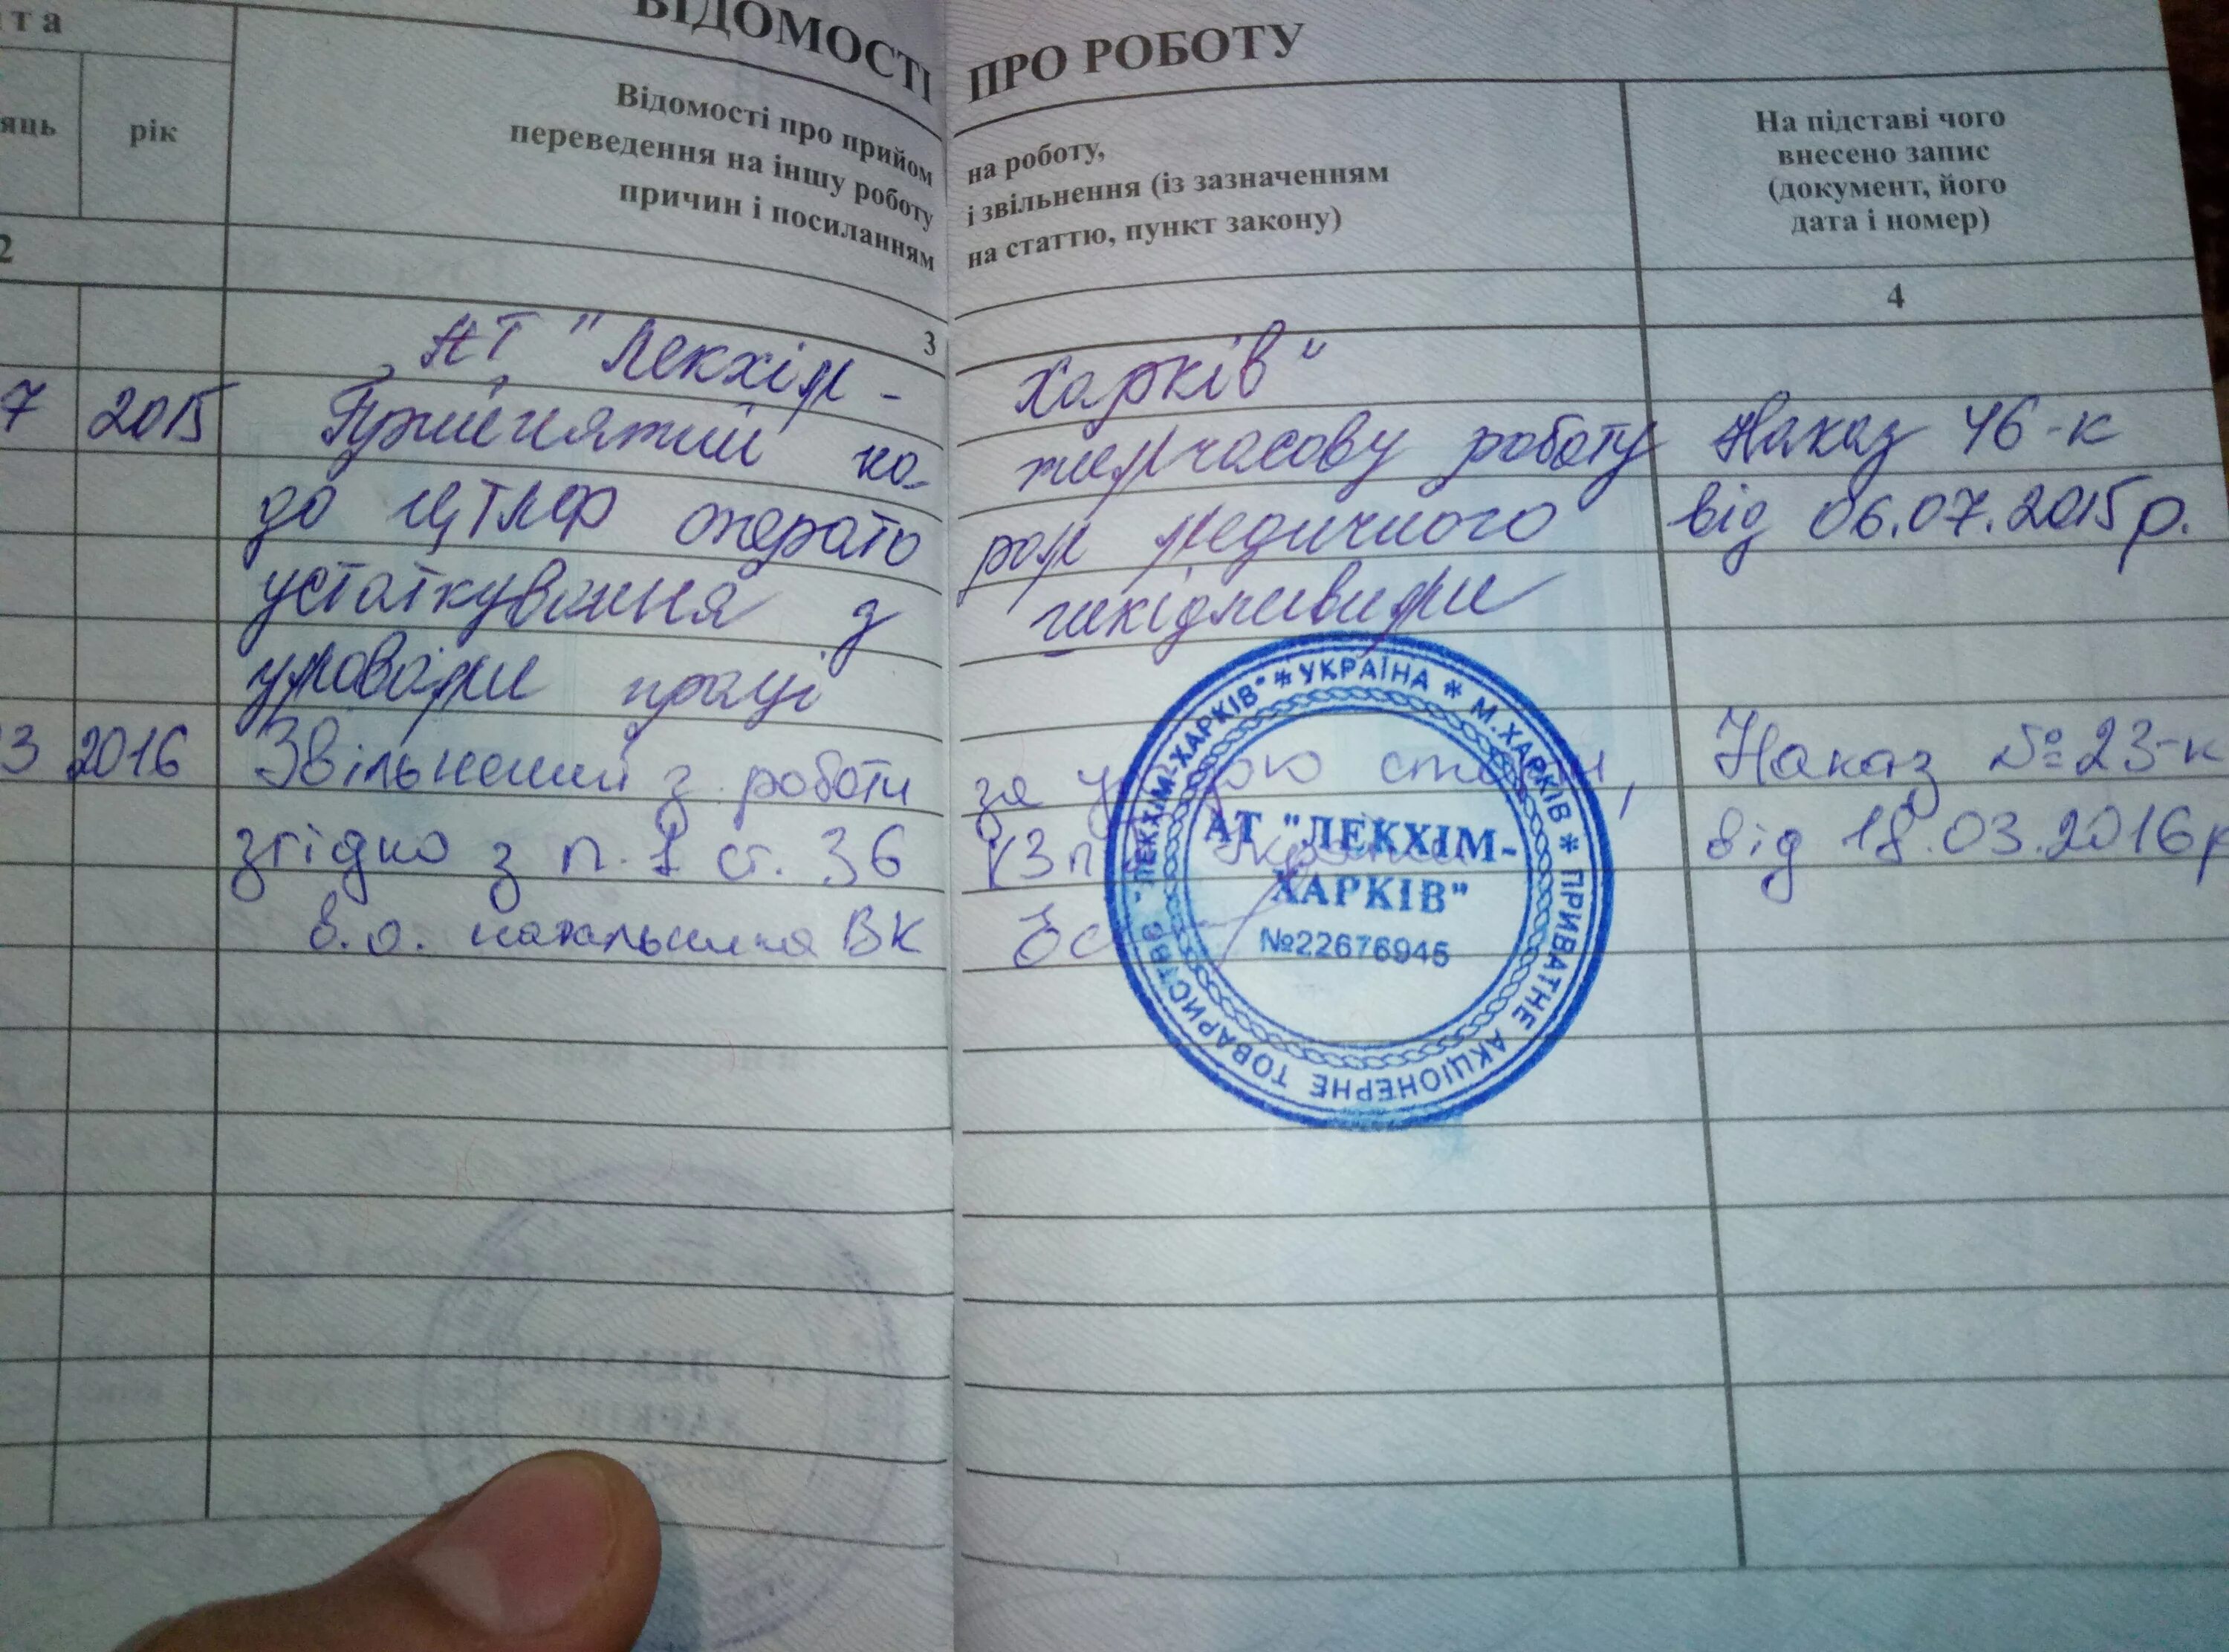 та
ВІДОМОСТІ ПРО РОБОТУ
яць рік
Відомості про прийом на роботу,
переведення на іншу роботу і звільнення (із зазначенням
причин і посиланням на статтю, пункт закону)
На підставі чого
внесено запис
(документ, його
дата і номер)
2 3 4
АТ "Лекхім - Харків"
7 2015 Прийнятий на тимчасову роботу Наказ 46-к
до ЦТЛФ операто ром медичного від 06.07.2015р.
устаткування з шкідливими
умовами праці
3 2016 Звільнений з роботи за угодою сторін, Наказ №23-к
згідно з п. 1 ст. 36 КЗпП України від 18.03.2016р
в.о. начальника ВК
* УКРАЇНА * М.ХАРКІВ * ПРИВАТНЕ АКЦІОНЕРНЕ ТОВАРИСТВО "ЛЕКХІМ-ХАРКІВ"
АТ "ЛЕКХІМ-
ХАРКІВ"
№22676945